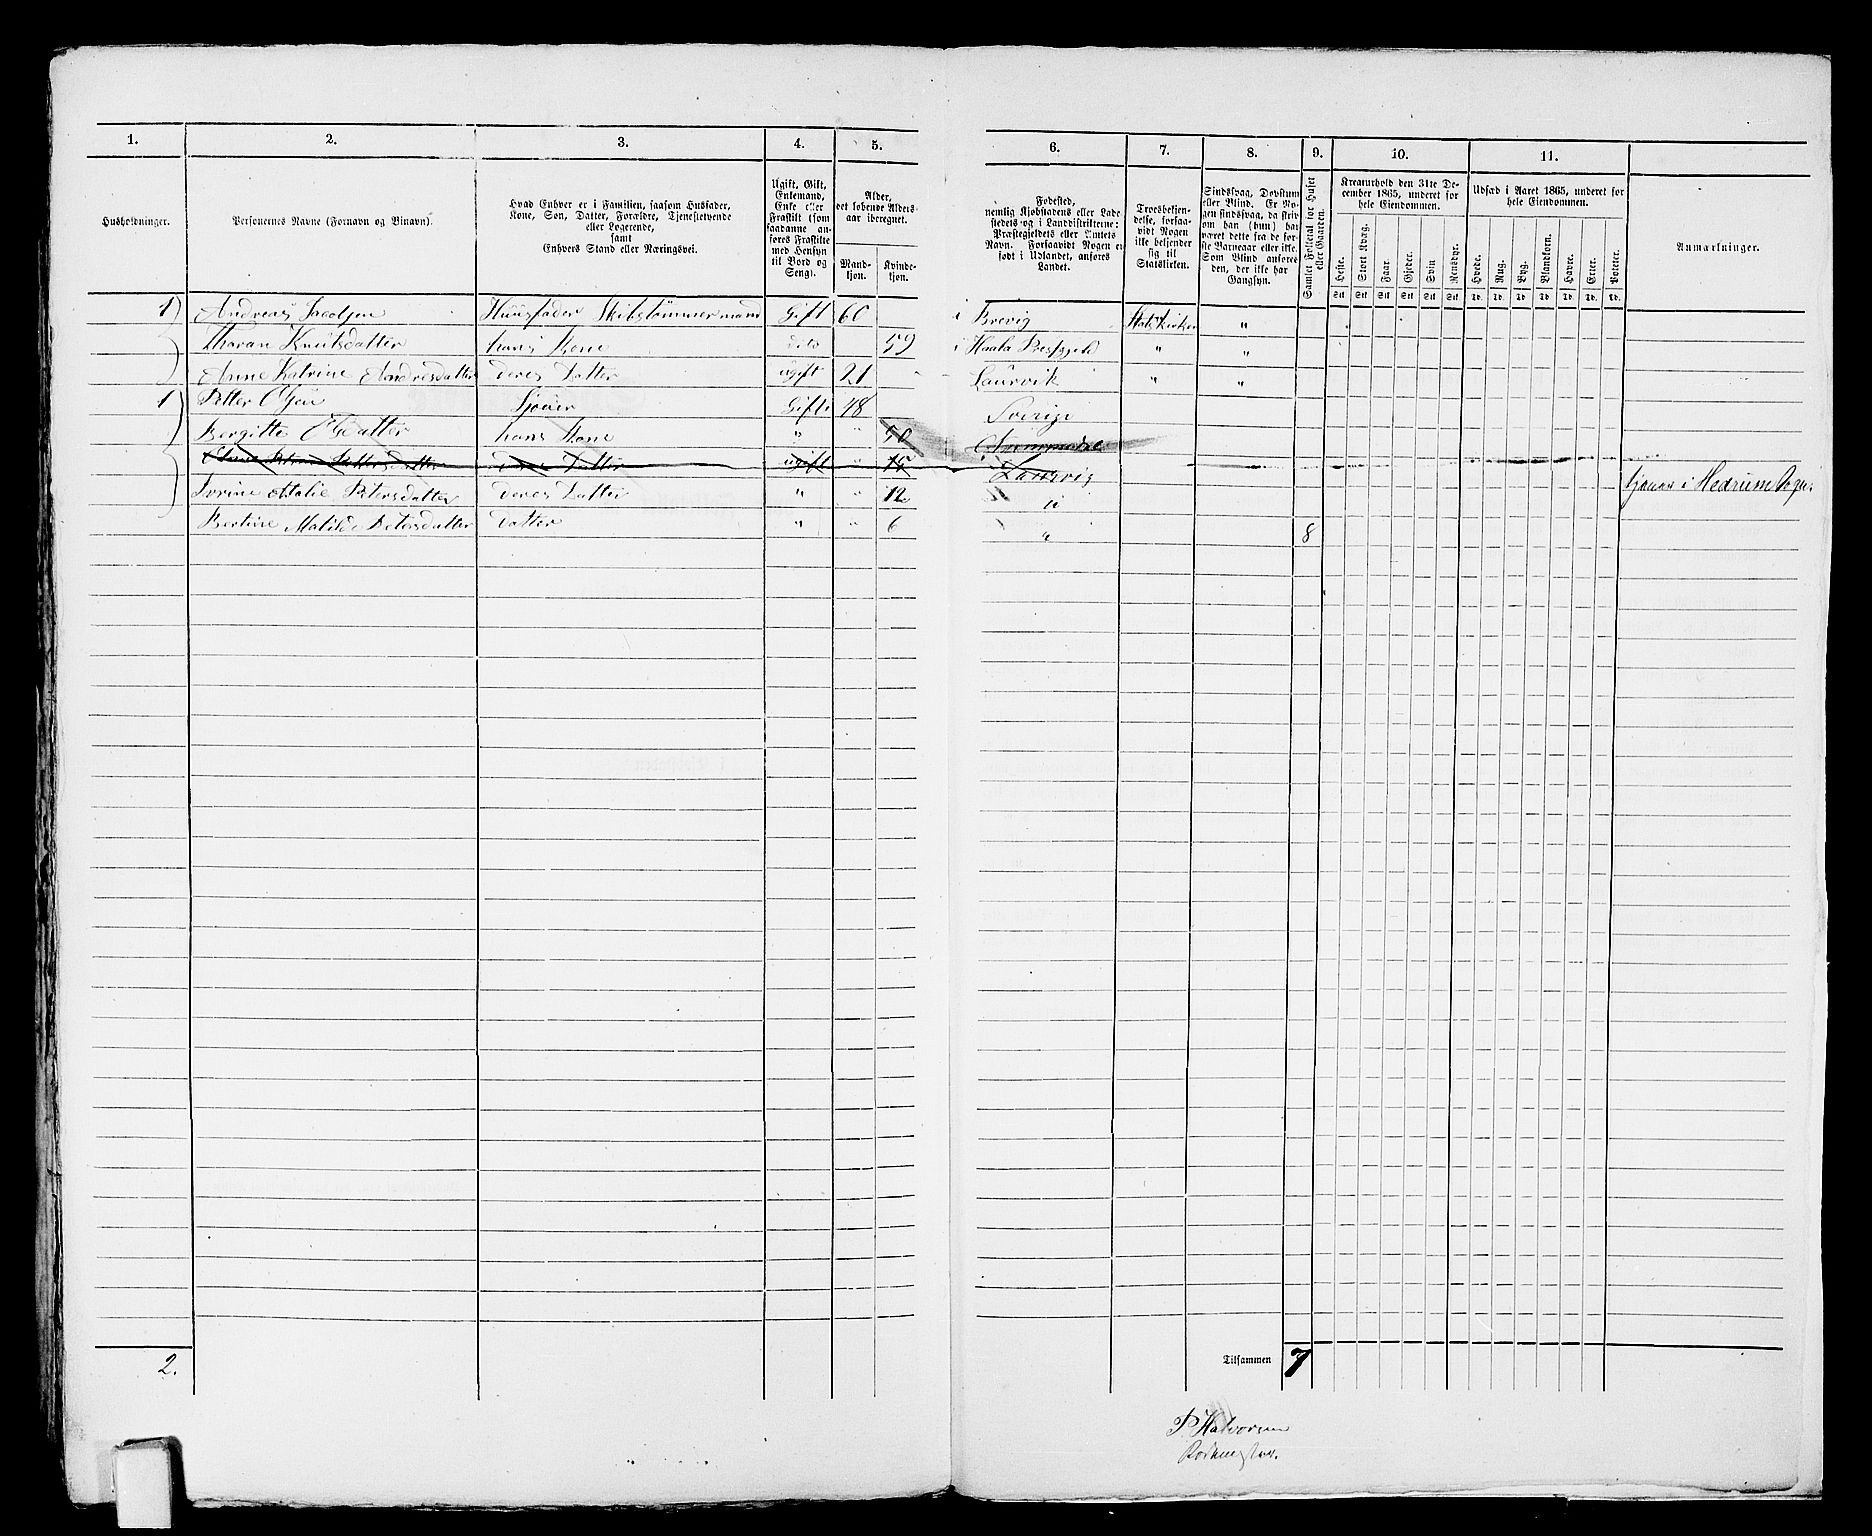 1. 2. 3. 4. 5. 6. 7. 8. 9. 10. 11.
Husholdninger.
Personernes Navne (Fornavn og Binavn).
Hvad Enhver er i Familien, saasom Husfader,
Kone, Søn, Datter, Forældre, Tjenestetyende
eller Logerende,
samt
Enhvers Stand eller Næringsvei.
Ugift, Gift,
Enkemand,
Enke eller
Fraskilt (som
saadanne an-
føres Fraskilte
med Hensyn
til Bord og
Seng).
Alder,
det løbende Alders-
aar iberegnet.
Mand-
kjøn.
Kvinde-
kjøn.
Fødested,
nemlig Kjøbstadens eller Lade
stedets og i Landdistrikterne:
Præstegjeldets eller Amtets
Navn. Forsaavidt Nogen er
født i Udlandet, anføres
Landet.
Troesbekjen-
delse, forsaa-
vidt Nogen
ikke bekjender
sig til
Statskirken.
Sindssvag, Døvstum
eller Blind. Er No-
gen sindssvag, da skriv
om han (hun) har
været dette fra de før-
ste Barneaar eller ikke.
Som Blind anføres
den, der ikke har
Gangsyn.
Samlet Folketal for Huset
eller Gaarden.
Kreaturhold den 31te De-
cember 1865, underet for
hele Eiendommen.
Heste.
Stort Kvæg.
Faar.
Gjeder.
Svin
Rensdyr.
Stk Stk Stk Stk Stk Stk
Udsæd i Aaret 1865, underet for
hele Eiendommen.
Hvede.
Rug.
Byg.
Blandkorn.
Havre.
Erter.
Poteter.
Td. Td. Td. Td. Td. Td. Td.
Anmærkninger.
1 Andreas Jacobsen Huusfader Skibstømmermand Gift 60 i Brevig Statskirken "
Tharan Knutsdatter hans Kone dito 59 i Prestgjeld " "
Anne Katrine Andresdatter deres Datter ugift 21 Laurvik " "
1 Petter Olsen Gift 48 Sverige
Bergitte Olsdatter hans Kone " " 50
Pettersdatter deres Datter ugift " 15 Laurvig
Malie Petersdatter deres Datter " " 12 " tjener i Hedrum Sogn.
Bertine Matilde Petersdatter Datter " " 6 " 8
2. Tilsammen 7
P. Halvorsen
Rodemester.